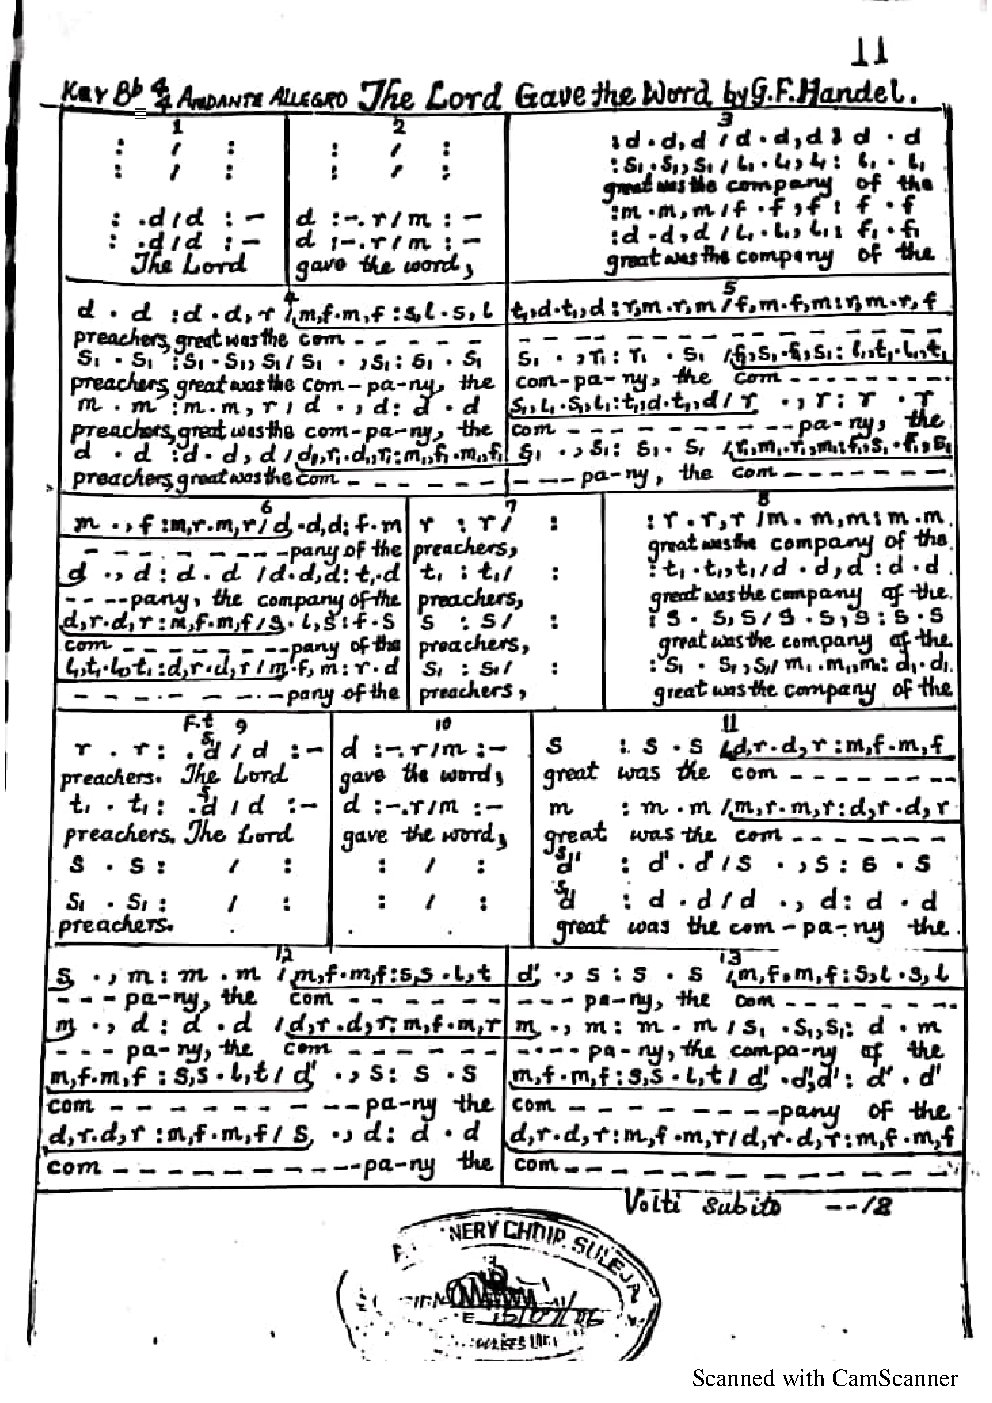 11
Key Bb 4/4 ANDANTE ALLEGRO The Lord Gave the Word by G.F. Handel.
1 2 3
: / : : / : :d.d,d/d.d,d:d.d
: / : : / : :s₁.s₁,s₁/l₁.l₁,l₁:l₁.l₁
great was the company of the
:m.m,m/f.f,f:f.f
: .d/d :– d :-.r/m :– :d.d,d/l₁.l₁,l₁:f₁.f₁
: .d/d :– d :-.r/m :–
The Lord gave the word, great was the company of the
4 5
d . d :d.d,r/m,f.m,f:s,l.s,l t₁,d.t₁,d:r,m.r,m/f,m.f,m:r,m.r,f
preachers, great was the com - - - - - - - - - - - - -
s₁ . s₁ :s₁.s₁,s₁/s₁ .,s₁:s₁.s₁ s₁ .,r₁:r₁ . s₁ /f₁,s₁.f₁,s₁:l₁,t₁.l₁,t₁
preachers, great was the com-pa-ny, the com-pa-ny, the com - - - - - - - -
m . m :m.m,r/d .,d:d.d s₁,l₁.s₁,l₁:t₁,d.t₁,d/r .,r:r.r
preachers, great was the com-pa-ny, the com - - - - - - - - - pa-ny, the
d . d :d.d,d/d₁,r₁.d₁,r₁:m₁,f₁.m₁,f₁ s₁ .,s₁:s₁.s₁ /r₁,m₁.r₁,m₁:f₁,s₁.f₁,s₁
preachers, great was the com - - - - - - - - pa-ny, the com - - - - -
6 7 8
m .,f:m,r.m,r/d.d,d:f.m r : r/ : :r.r,r/m.m,m:m.m
- - - - - - - -pany of the preachers, great was the company of the
d .,d:d.d/d.d,d:t₁.d t₁ : t₁/ : :t₁.t₁,t₁/d.d,d:d.d
- - - -pany, the company of the preachers, great was the company of the
d,r.d,r:m,f.m,f/s.l,s:f.s s : s/ : :s.s,s/s.s,s:s.s
com - - - - - - - -pany of the preachers, great was the company of the
l₁,t₁.l₁,t₁:d,r.d,r/m.f,m:r.d s₁ : s₁/ : :s₁.s₁,s₁/m₁.m₁,m₁:d₁.d₁
- - - - - - - -pany of the preachers, great was the company of the
F.t 9 10 11
r . r: .ˢd/d :– d :-.r/m :– s : s . s /d,r.d,r:m,f.m,f
preachers. The Lord gave the word, great was the com - - - - - - - -
t₁ . t₁: .ˢd/d :– d :-.r/m :– m : m . m /m,r.m,r:d,r.d,r
preachers. The Lord gave the word, great was the com - - - - - -
s . s: / : : / : ˢd' : d'.d'/s .,s:s.s
s₁ . s₁: / : : / : ˢd : d.d/d .,d:d.d
preachers. great was the com-pa-ny the
12 13
s .,m:m.m /m,f.m,f:s,s.l,t d' .,s:s.s /m,f.m,f:s,l.s,l
- - - pa-ny, the com - - - - - - - - - pa-ny, the com - - - - - - -
m .,d:d.d /d,r.d,r:m,f.m,r m .,m:m.m/s₁.s₁,s₁:d.m
- - - pa-ny, the com - - - - - - - - - - pa-ny, the compa-ny of the
m,f.m,f:s,s.l,t/d' .,s:s.s m,f.m,f:s,s.l,t/d'.d',d':d'.d'
com - - - - - - - - - -pa-ny the com - - - - - - - -pany of the
d,r.d,r:m,f.m,f/s .,d:d.d d,r.d,r:m,f.m,r/d,r.d,r:m,f.m,f
com - - - - - - - - - -pa-ny the com - - - - - - - - - - - - -
Volti subito --/2
NERY CHOIR SULEJA
Scanned with CamScanner